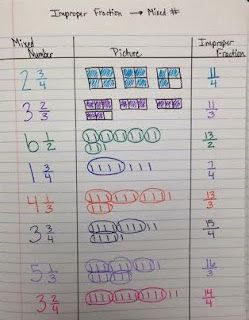 Improper Fraction → Mixed #
Mixed Number Picture Improper Fraction
2 3/4 11/4
3 2/3 11/3
6 1/2 13/2
1 3/4 7/4
4 1/3 13/3
3 3/4 15/4
5 1/3 16/3
3 2/4 14/4